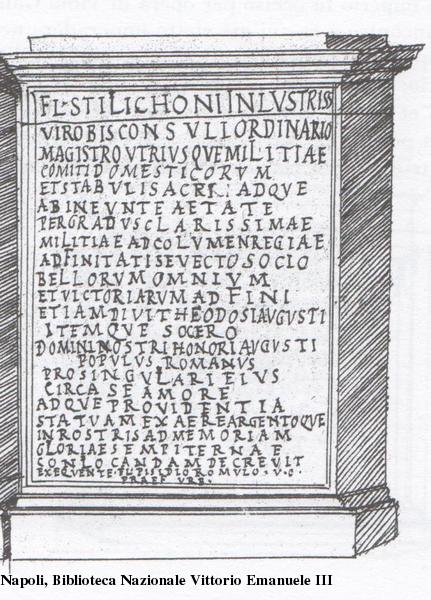 FL·STILICHONI INLVSTRISS
VIRO BIS CONSVLI ORDINARIO
MAGISTRO VTRIVSQVE MILITIAE
COMITI DOMESTICORVM
ET STABVLI SACRI: ADQVE
AB INEVNTE AETATE
PER GRADVS CLARISSIMAE
MILITIAE AD COLVMEN REGIAE
ADFINITATIS EVECTO SOCIO
BELLORVM OMNIVM
ET VICTORIARVM ADFINI
ETIAM DIVI THEODOSI AVGVSTI
ITEMQVE SOCERO
DOMINI NOSTRI HONORI AVGVSTI
POPVLVS ROMANVS
PRO SINGVLARI EIVS
CIRCA SE AMORE
ADQVE PROVIDENTIA
STATVAM EX AERE ARGENTOQVE
IN ROSTRIS AD MEMORIAM
GLORIAE SEMPITERNAE
CONLOCANDAM DECREVIT
EXEQVENTE·FL·PISIDIO ROMVLO·V·C·
PRAEF VRB·
Napoli, Biblioteca Nazionale Vittorio Emanuele III